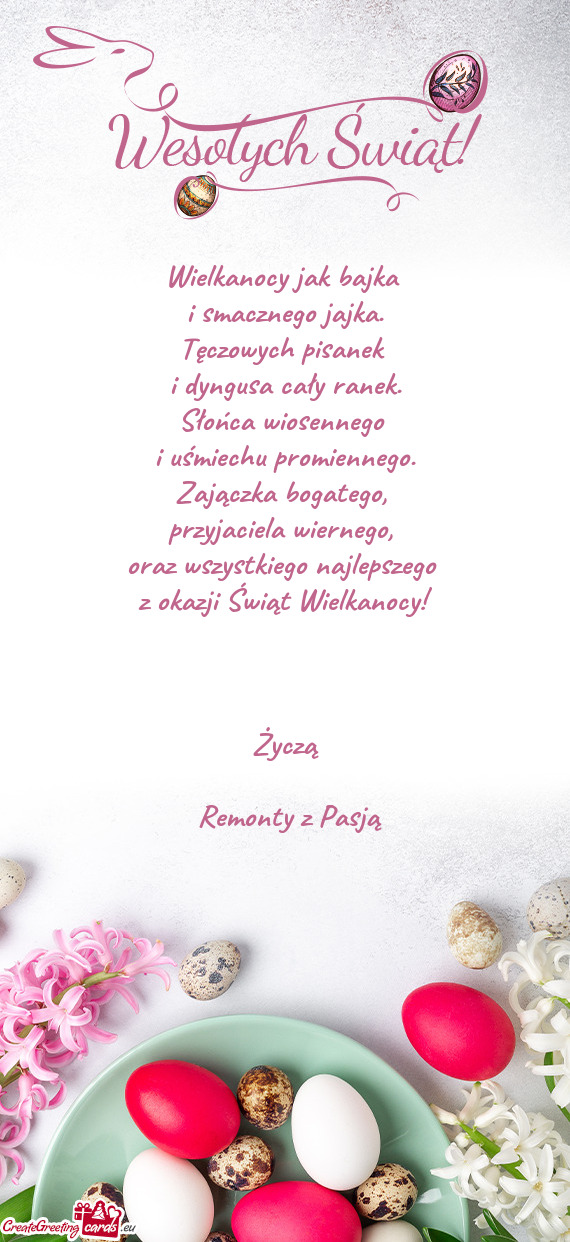 Wesołych Świąt!
Wielkanocy jak bajka
i smacznego jajka.
Tęczowych pisanek
i dyngusa cały ranek.
Słońca wiosennego
i uśmiechu promiennego.
Zajączka bogatego,
przyjaciela wiernego,
oraz wszystkiego najlepszego
z okazji Świąt Wielkanocy!
Życzą
Remonty z Pasją
CreateGreeting cards .eu